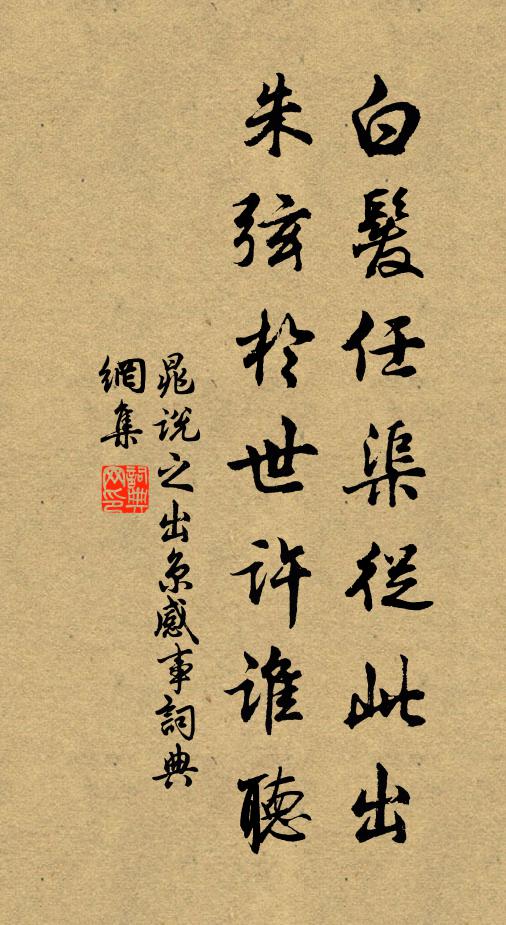 白髮任渠從此出
朱弦於世許誰聽
晁說之出京感事詞典
網集
詞典
网印